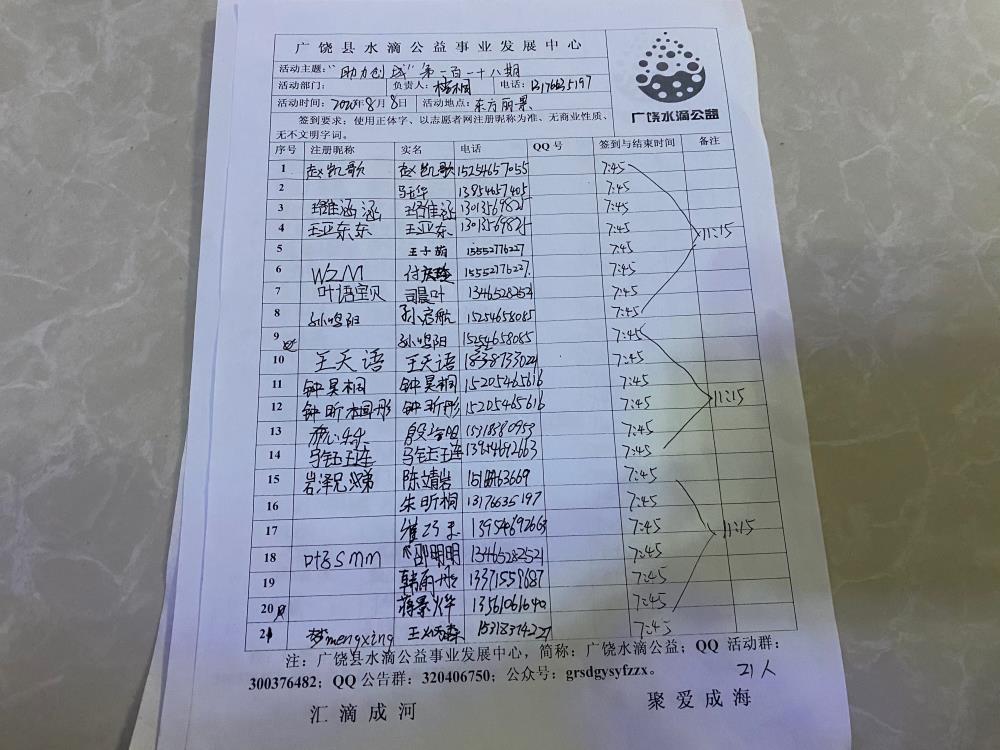 广饶县水滴公益事业发展中心
活动主题：“助力创城”第一百一十八期
活动部门： 负责人：梧桐 电话：13176635197
活动时间：2020年8月8日 活动地点：东方丽景
广饶水滴公益
签到要求：使用正体字、以志愿者网注册昵称为准、无商业性质、
无不文明字词。
序号 注册昵称 实名 电话 QQ号 签到与结束时间 备注
1 赵凯歌 赵凯歌 15254657055 7:45
2 马玉华 13954657405 7:45
3 涵涵 7:45
4 王亚东东 王亚东 7:45
11:15
5 王子萌 15552776227 7:45
6 WZM 15552776227 7:45
7 叶语宝贝 司晨叶 1346528252 7:45
8 孙鸣阳 孙启航 15254658085 7:45
9 孙鸣阳 15254658085 7:45
10 王天语 王天语 7:45
11 钟昊桐 钟昊桐 15205465616 7:45
12 钟昕彤 15205465616 7:45
11:15
13 15318380953 7:45
14 马钰玉连 马钰玉连 7:45
15 岩泽兄弟 陈靖岩 7:45
16 朱昕桐 13176635197 7:45
17 13954692663 7:45
11:15
18 叶子mm 邵明明 13465282521 7:45
19 韩雨彤 13371559687 7:45
20 蒋景烨 13561061640 7:45
21 梦mengxing 7:45
注：广饶县水滴公益事业发展中心，简称：广饶水滴公益；QQ 活动群：
300376482；QQ公告群：320406750；公众号：grsdgysyfzzx。
21人
汇滴成河 聚爱成海